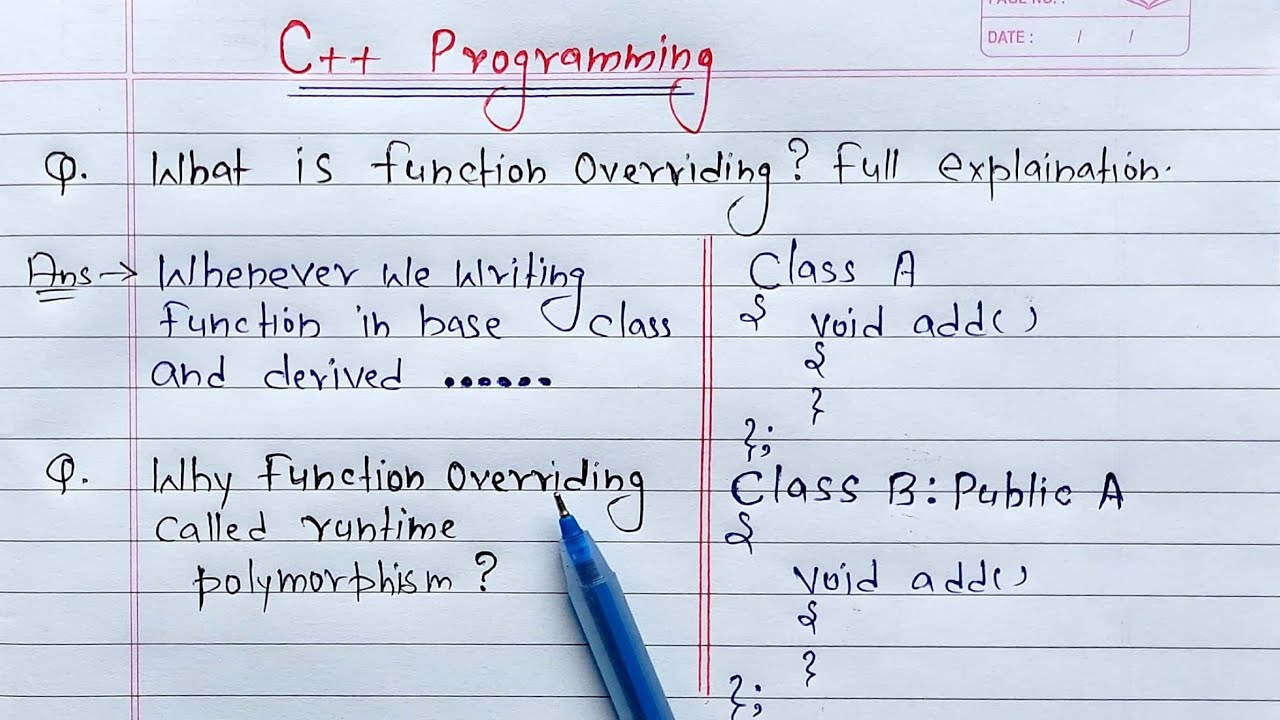 PAGE NO. :
DATE : / /
C++ Programming
Q. What is function Overriding? Full explaination.
Ans → Whenever we writing
function in base class
and derived ......
Q. Why Function Overriding
called runtime
polymorphism?
Class A
{ void add()
{
}
};
Class B: Public A
{
void add()
{
}
};